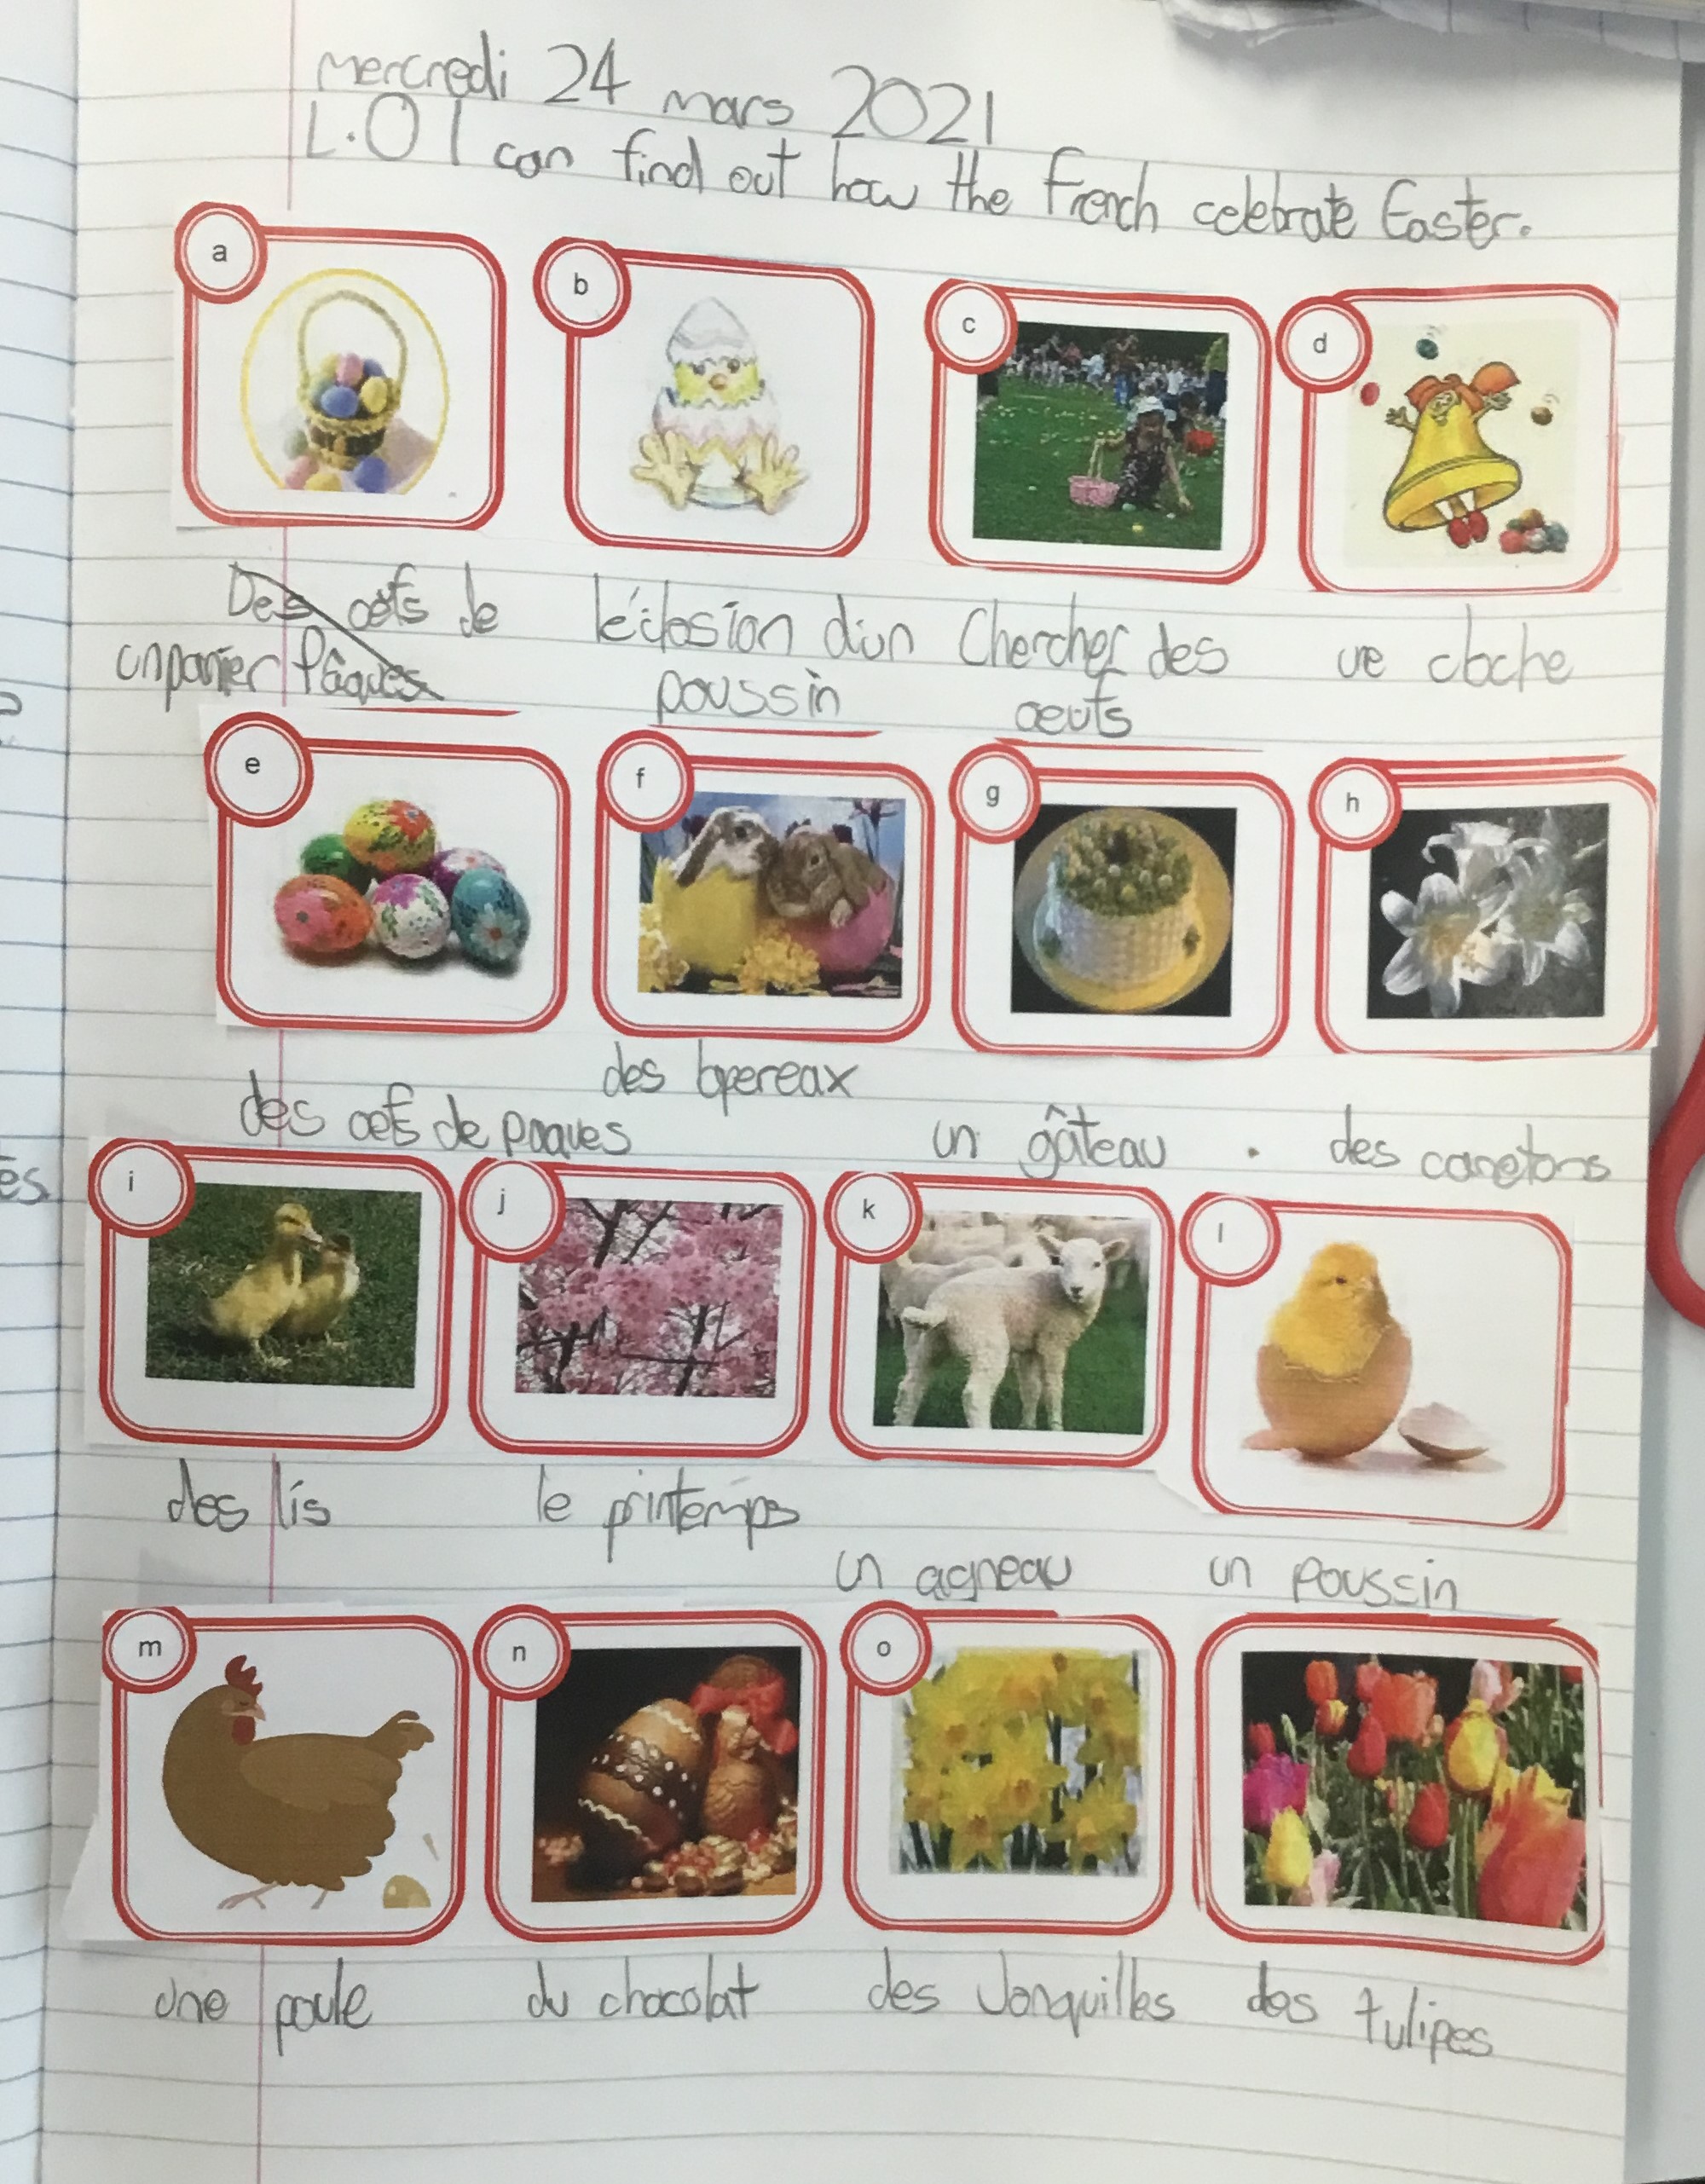 mercredi 24 mars 2021
L.O I can find out how the french celebrate Easter.
a
b
c
d
Des oefs de
un panier Pâques
l'éclosion d'un
poussin
Chercher des
oeufs
une cloche
e
f
g
h
des oefs de paques
des lapereax
un gâteau .
des canetons
i
j
k
l
des lis
le printemps
un agneau
un poussin
m
n
o
une poule
du chocolat
des Jonquilles
des tulipes
es